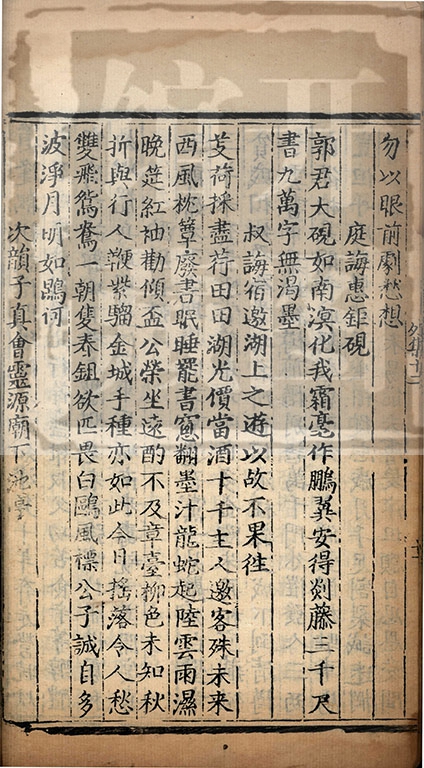 勿以眼前劇愁想
庭誨惠鉅硯
郭君大硯如南溟化我霜毫作鵬翼安得剡藤三千尺
書九萬字無渴墨
叔誨宿邀湖上之遊以故不果往
芰荷採盡荇田田湖光價當酒十千主人邀客殊未来
西風枕簟廢書眠睡罷書窓翻墨汁龍蛇起陸雲雨濕
晚筵紅袖勸傾盃公榮坐遠酌不及章臺柳色未知秋
折與行人鞭紫騮金城手種亦如此今日摇落令人愁
雙飛鴛鴦一朝隻春鉏欲匹畏白鷗風標公子誠自多
波淨月明如鷗何
次韻子真會靈源廟下池亭